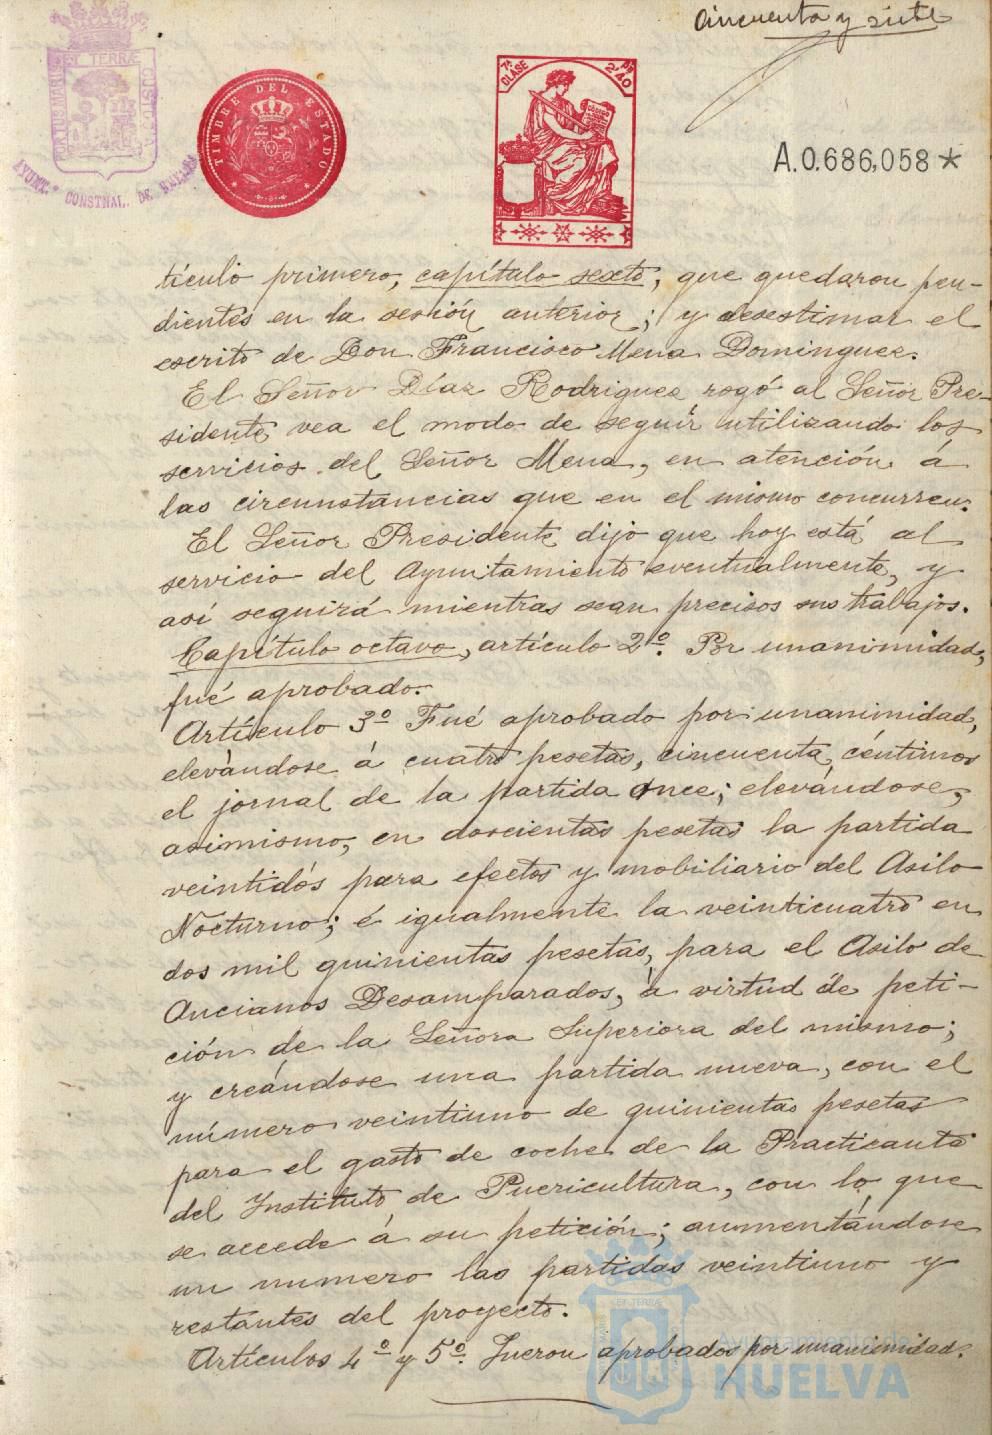 Cincuenta y siete
ET TERRÆ
PORTUS MARIS
CUSTODIA
AYUNT.º CONSTNAL. DE HUELVA
TIMBRE DEL ESTADO
7ª CLASE
2'40
A.0.686,058*
tículo primero, capítulo sexto, que quedaron pen-
dientes en la sesión anterior; y desestimar el
escrito de Don Francisco Mena Dominguez.
El Señor Díaz Rodriguez rogó al Señor Pre-
sidente vea el modo de seguir utilizando los
servicios del Señor Mena, en atención á
las circunstancias que en el mismo concurren.
El Señor Presidente dijo que hoy está al
servicio del Ayuntamiento eventualmente, y
así seguirá mientras sean precisos sus trabajos.
Capítulo octavo, artículo 2º. Por unanimidad,
fué aprobado.
Artículo 3º Fué aprobado por unanimidad,
elevándose á cuatro pesetas, cincuenta céntimos
el jornal de la partida once; elevándose,
asimismo, en doscientas pesetas la partida
veintidós para efectos y mobiliario del Asilo
Nocturno; é igualmente la veinticuatro en
dos mil quinientas pesetas, para el Asilo de
Ancianos Desamparados, á virtud de peti-
ción de la Señora Superiora del mismo;
y creándose una partida nueva, con el
número veintiuno de quinientas pesetas
para el gasto de coche de la Practicanta
del Instituto de Puericultura, con lo que
se accede á su petición; aumentándose
un numero las partidas veintiuno y
restantes del proyecto.
Artículos 4º y 5º. Fueron aprobados por unanimidad.
Ayuntamiento de
HUELVA